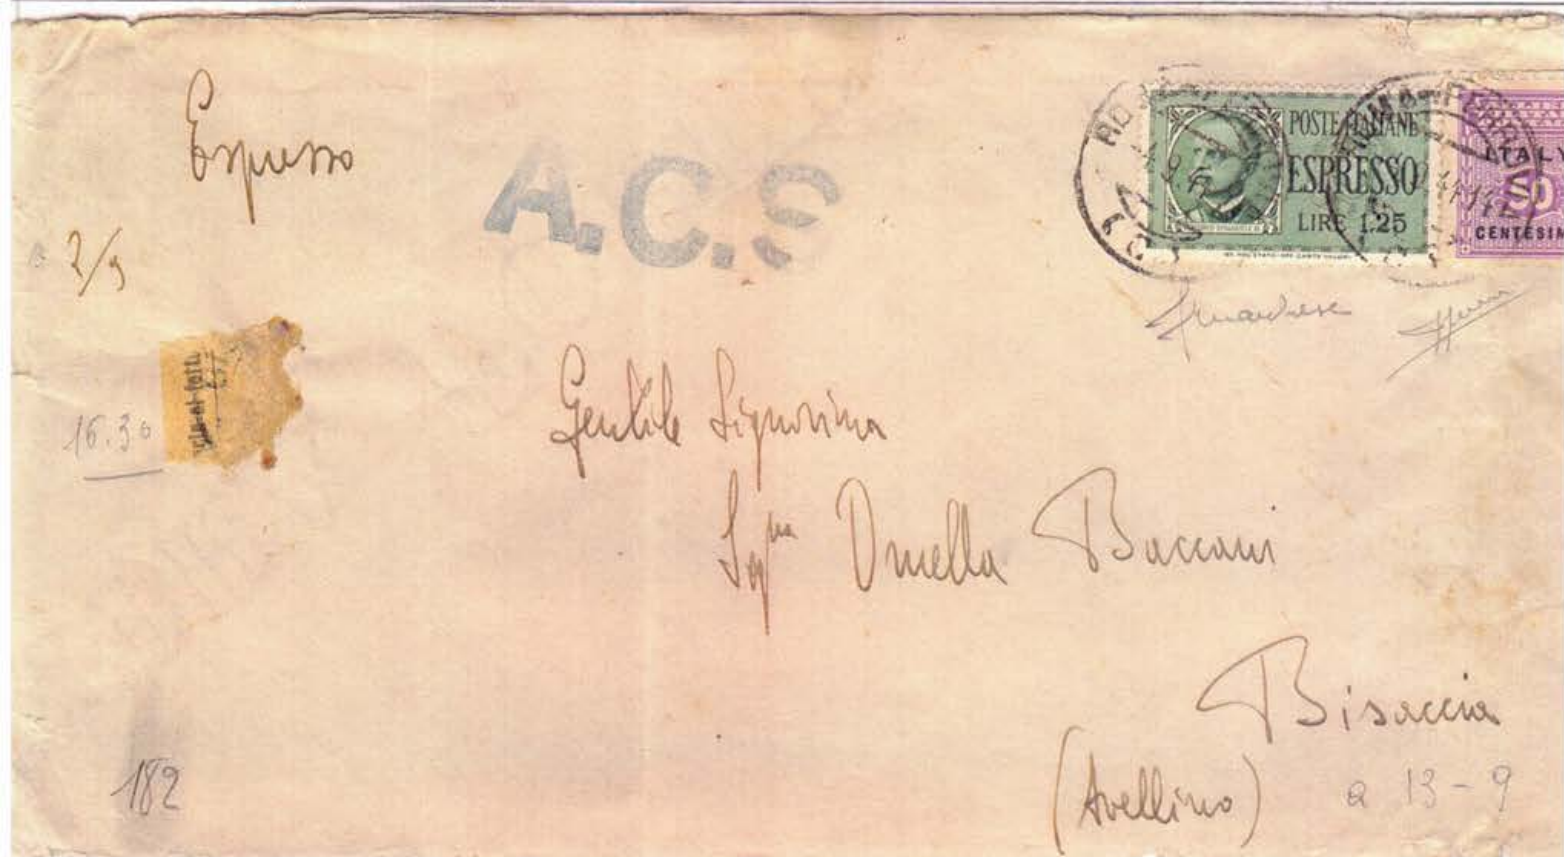 Espresso
A.C.S
POSTE ITALIANE
ESPRESSO
LIRE 1.25
ITALY
50
CENTESIM
2/9
16.30
Gentile Signorina
Sig.na Ornella Baccani
Bisaccia
(Avellino)
a 13-9
182